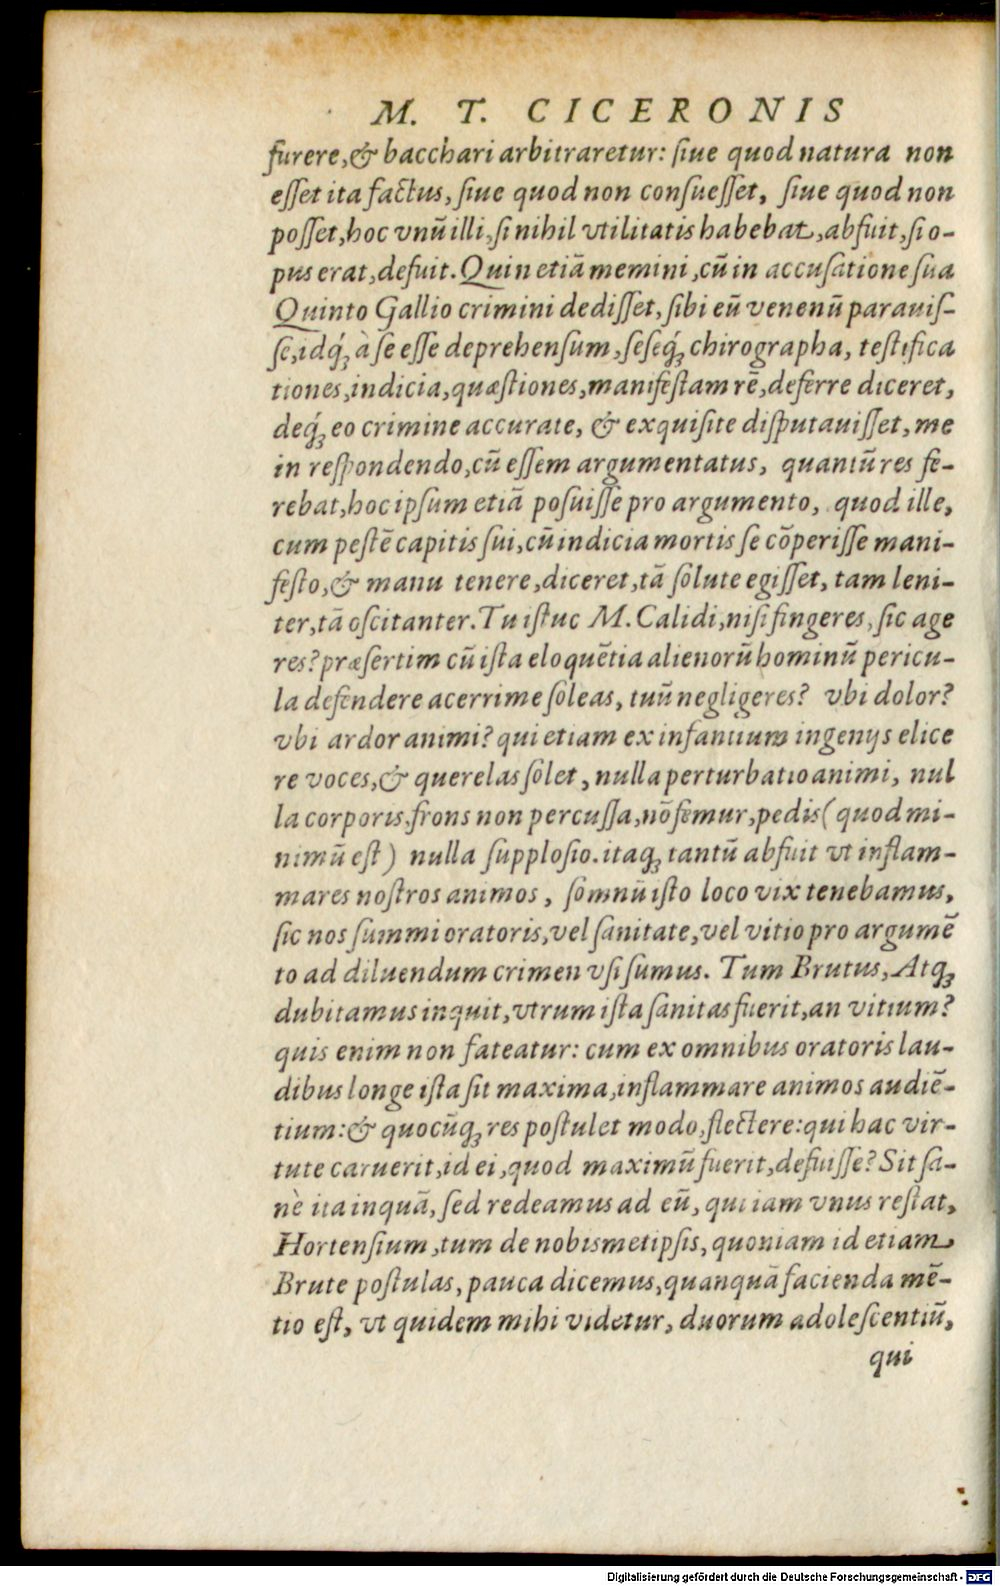 M. T. CICERONIS
furere,& bacchari arbitraretur: ſiue quod natura non
eſſet ita factus, ſiue quod non conſueſſet, ſiue quod non
poſſet,hoc vnũ illi,ſi nihil vtilitatis habebat,abfuit,ſi o-
pus erat,defuit. Quin etiã memini,cũ in accuſatione ſua
Quinto Gallio crimini dediſſet, ſibi eũ venenũ parauiſ-
ſe,idq́ꝫ à ſe eſſe deprehenſum,ſeſeq́ꝫ chirographa, teſtifica
tiones,indicia,quæſtiones,manifeſtam rẽ,deferre diceret,
deq́ꝫ eo crimine accurate, & exquiſite diſputauiſſet, me
in reſpondendo,cũ eſſem argumentatus, quantũ res fe-
rebat,hoc ipſum etiã poſuiſſe pro argumento, quod ille,
cum peſtẽ capitis ſui,cũ indicia mortis ſe cõperiſſe mani-
feſto,& manu tenere,diceret,tã ſolute egiſſet, tam leni-
ter,tã oſcitanter. Tu iſtuc M. Calidi,niſi fingeres, ſic age
res? præſertim cũ iſta eloquẽtia alienorũ hominũ pericu-
la defendere acerrime ſoleas, tuũ negligeres? vbi dolor?
vbi ardor animi? qui etiam ex infantium ingenijs elice
re voces,& querelas ſolet, nulla perturbatio animi, nul
la corporis,frons non percuſſa,nõ femur,pedis( quod mi-
nimũ eſt ) nulla ſupploſio. itaqꝫ tantũ abfuit vt inflam-
mares noſtros animos, ſomnũ iſto loco vix tenebamus,
ſic nos ſummi oratoris,vel ſanitate,vel vitio pro argumẽ
to ad diluendum crimen vſi ſumus. Tum Brutus, Atqꝫ
dubitamus inquit,vtrum iſta ſanitas fuerit,an vitium?
quis enim non fateatur: cum ex omnibus oratoris lau-
dibus longe iſta ſit maxima,inflammare animos audiẽ-
tium:& quocũqꝫ res poſtulet modo,flectere:qui hac vir-
tute caruerit,id ei,quod maximũ fuerit,defuiſſe? Sit ſa-
nè ita inquã, ſed redeamus ad eũ, qui iam vnus reſtat,
Hortenſium,tum de nobismetipſis,quoniam id etiam
Brute poſtulas,pauca dicemus,quanquã facienda mẽ-
tio eſt, vt quidem mihi videtur, duorum adoleſcentiũ,
qui
Digitalisierung gefördert durch die Deutsche Forschungsgemeinschaft - DFG